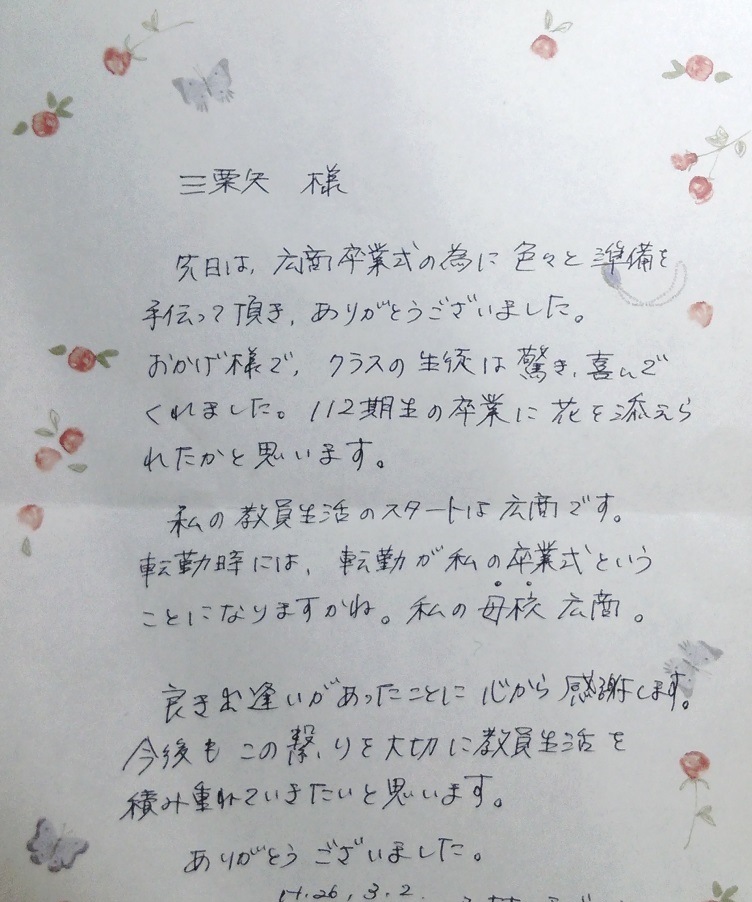 三栗矢 様
先日は、広商卒業式の為に色々と準備を
手伝って頂き、ありがとうございました。
おかげ様で、クラスの生徒は驚き、喜んで
くれました。112期生の卒業に花を添えら
れたかと思います。
私の教員生活のスタートは広商です。
転勤時には、転勤が私の卒業式という
ことになりますかね。私の母校 広商。
良き出逢いがあったことに心から感謝します。
今後もこの繋りを大切に教員生活を
積み重ねていきたいと思います。
ありがとうございました。
H.26, 3. 2.